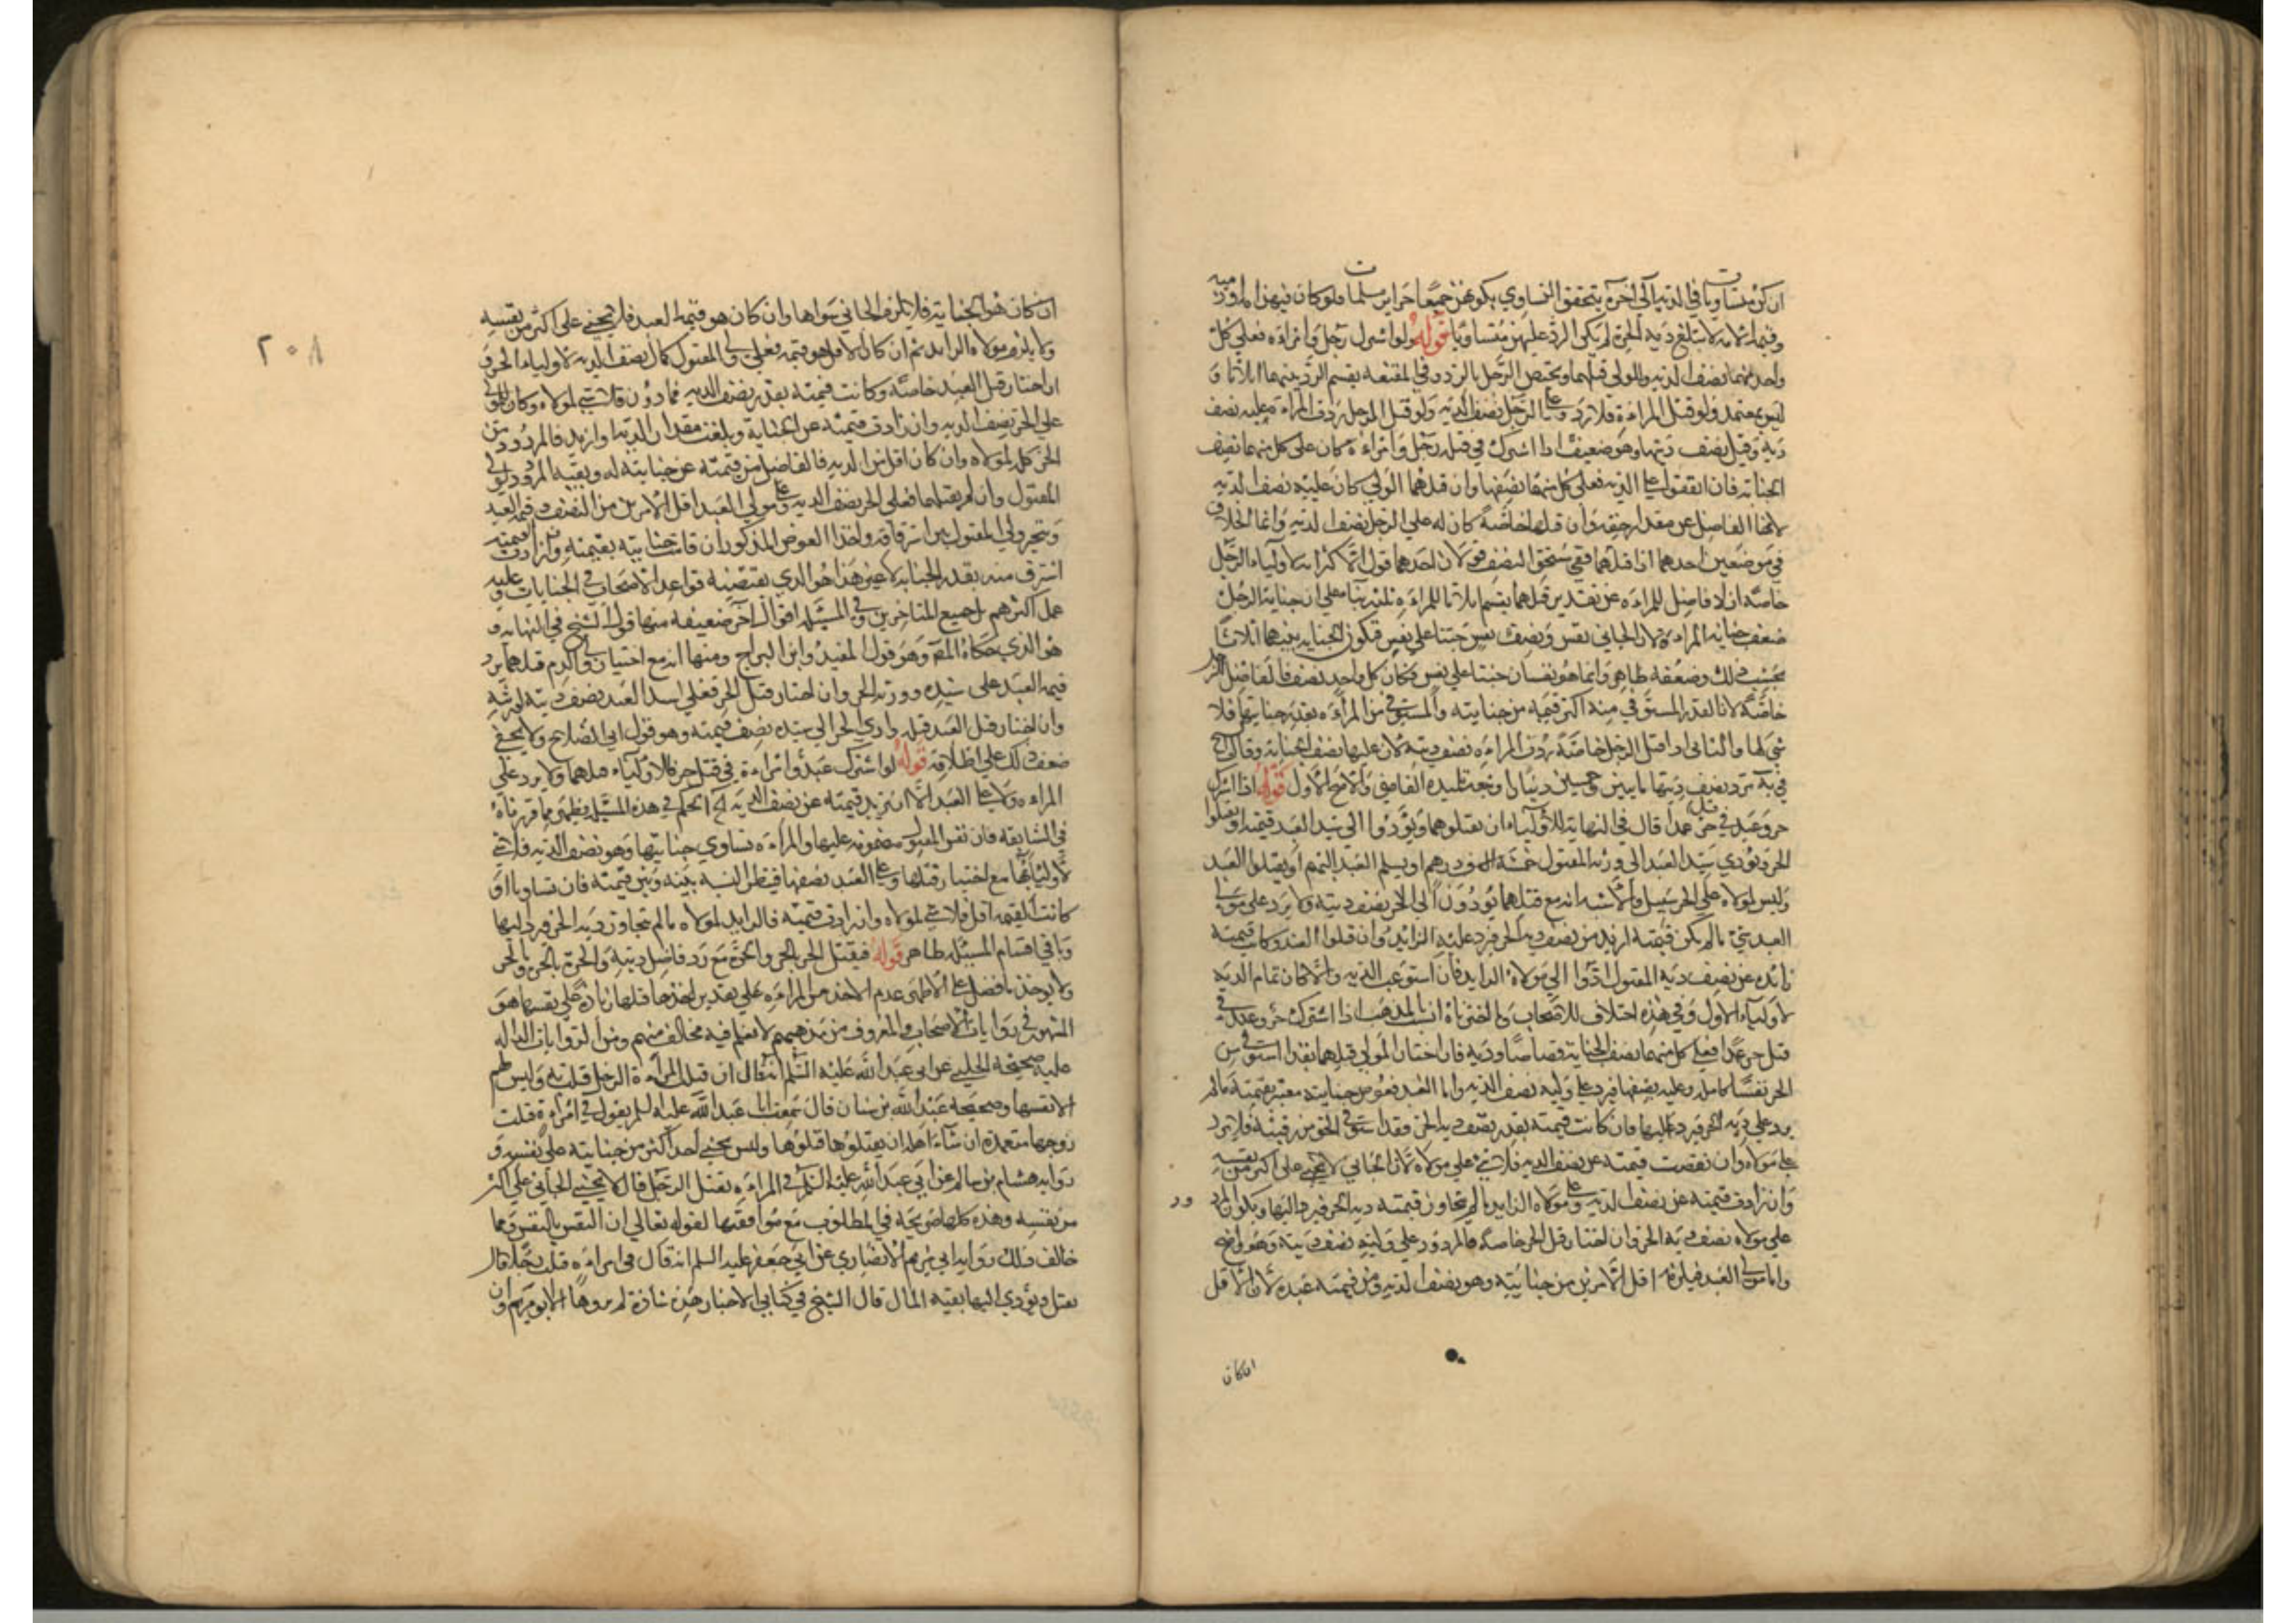 ان كن متساويات في الدية الى آخره يتحقق التساوي بكونهن جميعا حراير مسلمات فلو كان فيهن امة او ذمية
وقيمة الامة لا تبلغ دية الحرة لم يكن الرد عليهن متساويا قوله ولو اشترك رجل وامراءة فعلى كل
واحد منهما نصف الدية وللولي قتلهما ويختص الرجل بالرد وفي المقنعة يقسم الرد بينهما اثلاثا و
ليس بمعتمد ولو قتل المراءة فلا رد وعلى الرجل نصف الدية ولو قتل الرجل ردت المراءة عليه نصف
ديته وقيل نصف ديتها وهو ضعيف اذا اشترك في قتل رجل وامراءة كان على كل منهما نصف
الجناية فان اتفقوا على الدية فعلى كل منهما نصفها وان قتلهما الولي كان عليه نصف الدية
لانها الفاضل عن مقدار حقه وان قتلها خاصة كان له على الرجل نصف الدية وانما الخلاف
في موضعين احدهما اذا قتلهما ففي مستحق النصف قولان احدهما قول الاكثر انه لاولياء الرجل
خاصة اذ لا فاضل للمراءة عن تقدير قتلهما يقسم اثلاثا للمراءة ثلثه بناء على ان جناية الرجل
ضعف جناية المراءة لان الجاني نفس ونصف نفس جنتا على نفس فتكون الجناية بينهما اثلاثا
بحسب ذلك وضعفه ظاهر وانما هو نفسان جنتا على نفس فكان كل واحد نصف فالفاضل للرجل
خاصة لان القدر المستوفي منه اكثر قيمة من جنايته والمستوفي من المراءة بقدر جنايتها فلا
شي لها والثاني اذا قتل الرجل خاصة ردت المراءة نصف ديته لان عليها نصف الجناية وقال الشيخ
في ية ترد نصف ديتها مايتين وخمسين دينارا وتبعه تلميذه القاضي والاصح الاول قوله اذا اشترك
حر وعبد في قتل حر عمدا قال في النهاية للاولياء ان يقتلوهما ويؤدوا الى سيد العبد قيمته او يقتلوا
الحر ويؤدي سيد العبد الى ورثة المقتول خمسة الف درهم او يسلم العبد اليهم او يقتلوا العبد
وليس لمولاه على الحر سبيل والاشبه انه مع قتلهما يؤدون الى الحر نصف ديته ولا يرد على مولى
العبد شيء ما لم تكن قيمته ازيد من نصف دية الحر فيرد عليه الزائد وان قتلوا العبد وكانت قيمته
زائدة عن نصف دية المقتول ادوا الى مولاه الزايد فان استوعب الدية والا كان تمام الدية
لاولياء الاول وفي هذه اختلاف للاصحاب وما اخترناه انسب بالمذهب اذا اشترك حر وعبد في
قتل حر عمدا فعلى كل منهما نصف الجناية قصاصا ودية فان اختار المولى قتلهما فقد استوفى من
الحر نفسا كاملة وعليه نصفها فيرد على وليه نصف الدية واما العبد فعوض جنايته معتبر بقيمته ما لم
يزد على دية الحر فيرد عليها فان كانت قيمته بقدر نصف دية الحر فقد استوفى الحق من رقبته فلا يرد
على مولاه وان نقصت قيمته عن نصف الدية فلا شيء على مولاه لان الجاني لا يجني على اكثر من نفسه
وان زادت قيمته عن نصف الدية رد على مولاه الزايد ما لم يتجاوز قيمته دية الحر فيرد اليها ويكون الرد
على مولاه نصف دية الحر وان اختار قتل الحر خاصة فالمردود على وليه نصف ديته وهو واضح
واما مولى العبد فيلزمه اقل الامرين من جنايته وهو نصف الدية ومن قيمته عبده لان الاقل
ان كان
٢٠٨
ان كان هو الجناية فلا يلزم الجاني سواها وان كان هو قيمة العبد فلا يجني على اكثر من نفسه
ولا يلزم مولاه الزايد ثم ان كان الاقل هو قيمته فعلى ولي المقتول كمال نصف الدية لاولياء الحر و
ان اختار قتل العبد خاصة وكانت قيمته بقدر نصف الدية فما دون فلا شيء لمولاه وكان للولي
على الحر نصف الدية وان زادت قيمته عن الجناية وبلغت مقدار الدية او ازيد فالمردود من
الحر كله لمولاه وان كان اقل من الدية فالفاضل من قيمته عن جنايته له وبقية المردود لولي
المقتول وان لم يقتلهما فعلى الحر نصف الدية وعلى مولى العبد اقل الامرين من النصف وقيمة العبد
ويتخير ولي المقتول بين استرقاقه واخذ العوض المذكور ان قامت جنايته بقيمته وان زادت قيمته
استرق منه بقدر الجناية لا غير هذا هو الذي يقتضيه قواعد الاصحاب في الجنايات وعليه
عمل اكثرهم بل جميع المتاخرين وفي المسئلة اقوال اخر ضعيفة منها قول الشيخ في النهاية و
هو الذي حكاه المص وهو قول المفيد وابن البراج ومنها انه مع اختيار ولي الدم قتلهما يرد
قيمة العبد على سيده وورثة الحر وان اختار قتل الحر فعلى سيد العبد نصف ديته لورثته
وان اختار قتل العبد قتله وادي الحر الى سيده نصف قيمته وهو قول ابي الصلاح ولا يخفى
ضعف ذلك على اطلاقه قوله لو اشترك عبد وامراءة في قتل حر فللاولياء قتلهما ولا يرد على
المراءة ولا على العبد الا ان تزيد قيمته عن نصف الدية الخ الحكم في هذه المسئلة يظهر مما قررناه
في السابقة فان نفس المقتول مضمونة عليهما والمراءة تساوي جنايتها وهو نصف الدية فلا شيء
لاوليائها مع اختيار قتلها وعلى العبد نصفها فينظر النسبة بينه وبين قيمته فان تساويا او
كانت القيمة اقل فلا شيء لمولاه وان زادت قيمته فالزايد لمولاه ما لم تتجاوز دية الحر فيرد اليها
وباقي اقسام المسئلة ظاهر قوله فيقتل الحر بالحر والحرة مع رد فاضل ديته والحرة بالحرة والحر
ولا يوخذ ما فضل على الاظهر عدم الاخذ من المراءة على تقدير اخذها قتلها زيادة على نفسها هو
المشهور في روايات الاصحاب والمعروف من مذهبهم لا نعلم فيه مخالف منهم ومن الروايات الدالة
عليه صحيحة الحلبي عن ابي عبد الله عليه السلم انه قال ان قتلت المراءة الرجل قتلت به وليس لهم
الا نفسها وصحيحة عبد الله بن سنان قال سمعت ابا عبد الله عليه السلم يقول في امراءة قتلت
زوجها متعمدة ان شاء اهله ان يقتلوها قتلوها وليس يجني احد اكثر من جنايته على نفسه و
رواية هشام بن سالم عن ابي عبد الله عليه السلم في المراءة تقتل الرجل قال لا يجني الجاني على اكثر
من نفسه وهذه كلها صريحة في المطلوب مع موافقتها لقوله تعالى ان النفس بالنفس ومما
خالف ذلك رواية ابي مريم الانصاري عن ابي جعفر عليه السلم انه قال في امراءة قتلت رجلا قال
تقتل ويؤدي اليها بقية المال قال الشيخ في كتابي الاخبار هذه شاذة لم يروها الا ابو مريم وان